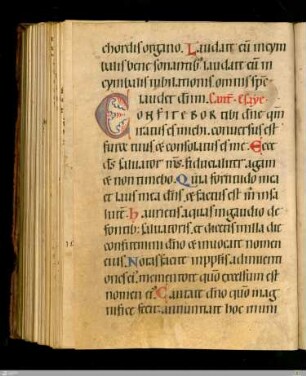 chordis & organo. Laudate eū in cym
balis bene sonantib; laudate eū in
cymbalis iubilationis omnis spc
laudet dn̄m. Cant. esaye.
CONFITEBOR tibi dn̄e qm̄
iratus es michi. conuersus est
furor tuus & consolatus es me. Ecce
ds̄ saluator ms̄. fiducialiter agam
& non timebo. Quia fortitudo mea
et laus mea dn̄s. & factus est m̄ in sa
lutē. Haurietis aquas in gaudio de
fontib; saluatoris. et dicetis in illa die
confitemini dn̄o & inuocate nomen
eius. Notas facite in pplis adinuenti
ones ei. mementote qm̄ excelsum est
nomen ei. Cantate dn̄o qm̄ mag
nifice fecit. annuntiate hoc in uni